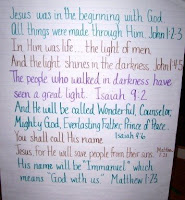 Jesus was in the beginning with God
All things were made through Him. John 1:2-3
In Him was life... the light of men.
And the light shines in the darkness. John 1:4-5
The people who walked in darkness have
seen a great light. Isaiah 9:2
And He will be called Wonderful, Counselor,
Mighty God, Everlasting Father, Prince of Peace.
Isaiah 9:6
You shall call His name
Jesus, for He will save people from their sins.
Matthew 1:21
His name will be "Immanuel" which
means "God with us." Matthew 1:23